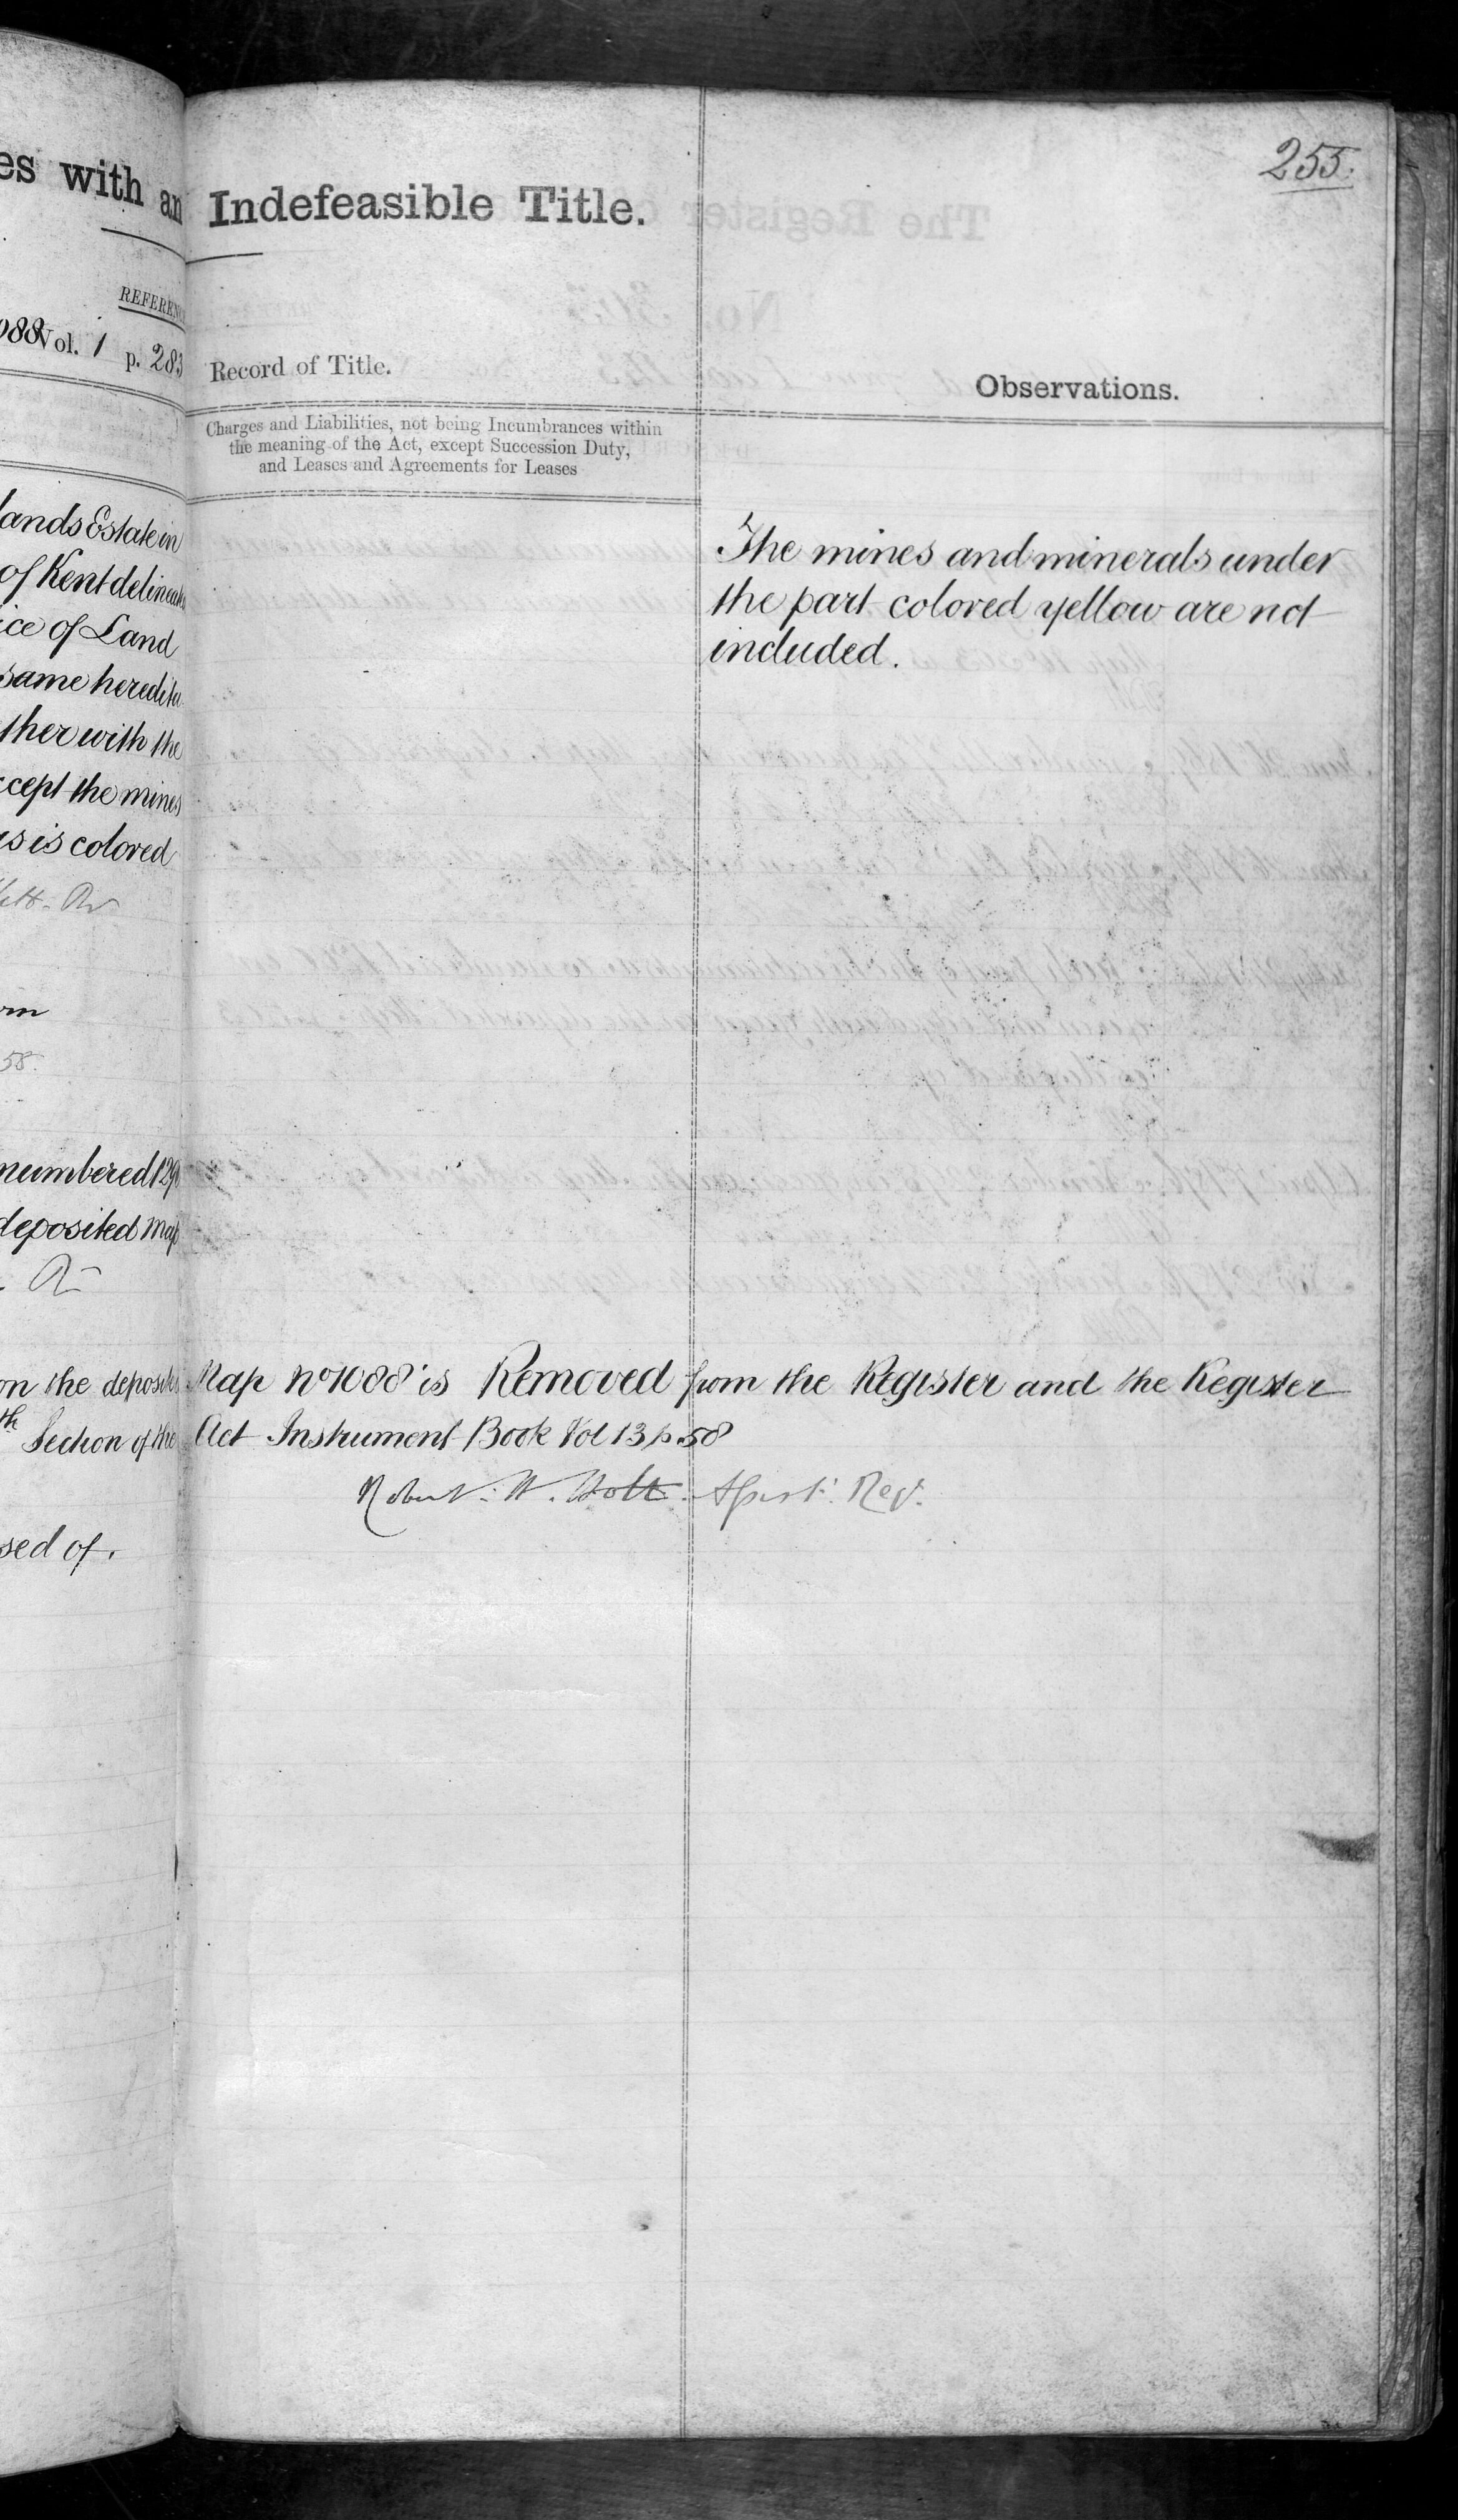 es with an
REFEREN
088 Vol. 1 p. 283
lands Estate in
of Kent delineate
ice of Land
same heredita
ther with the
xcept the mines
us is colored
58.
numbered 129
deposited Map
on the deposite
th Section of the
sed of.
255.
Indefeasible Title.
Record of Title.
Observations.
Charges and Liabilities, not being Incumbrances within
the meaning of the Act, except Succession Duty,
and Leases and Agreements for Leases
The mines and minerals under
the part colored yellow are not
included.
Map No 1088 is Removed from the Register and the Register
Act Instrument Book Vol 13 p. 58
Robert. H. Holt. Assist. Reg.